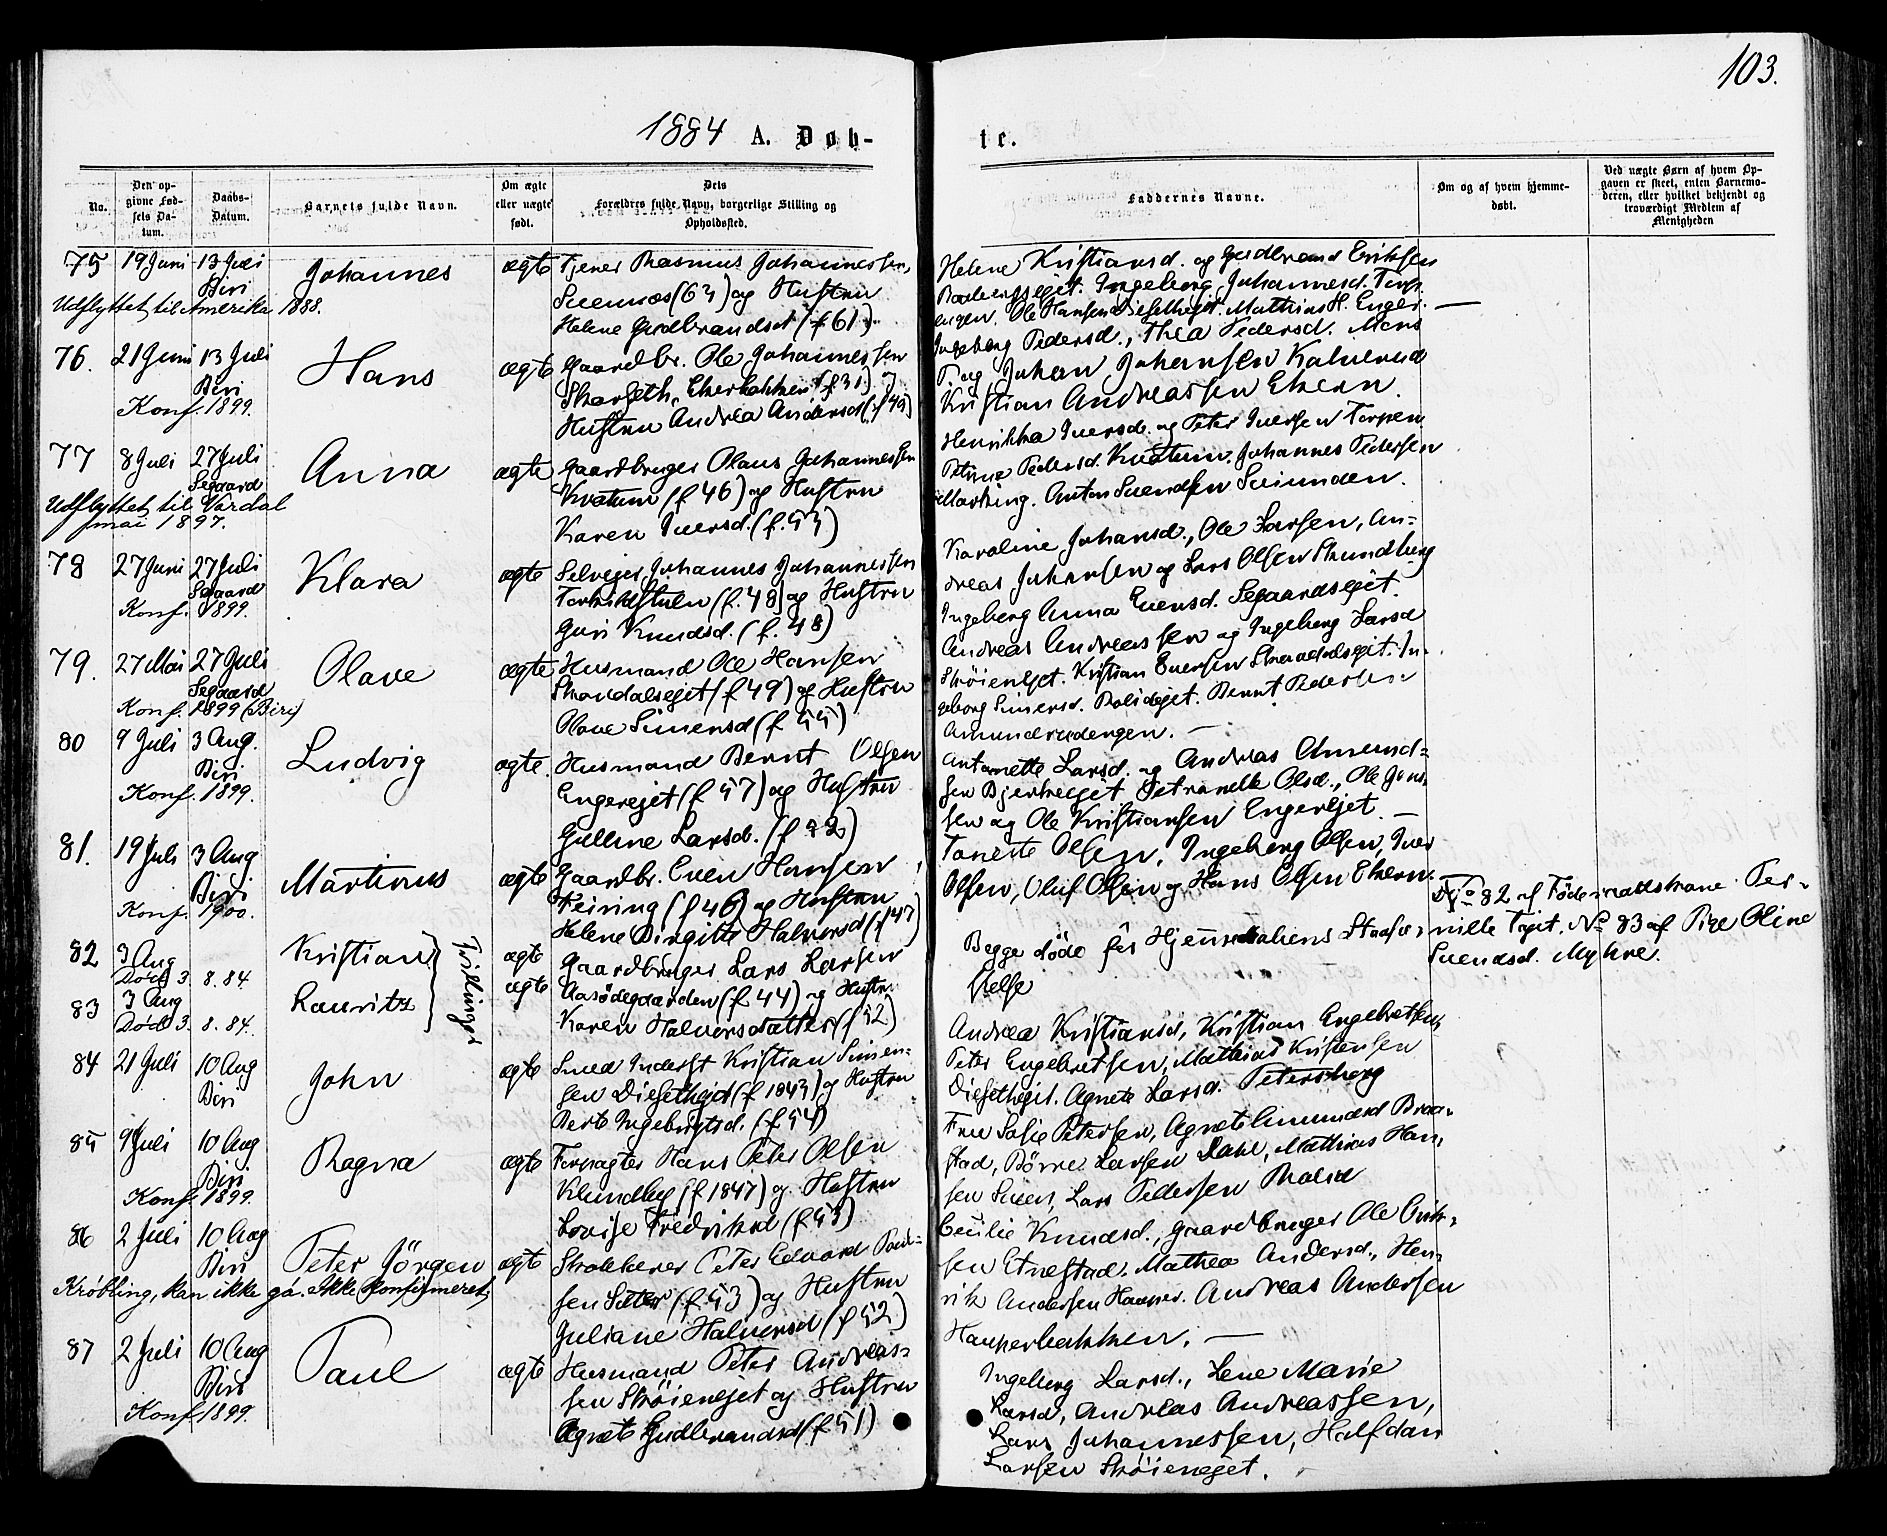 103.
1884 A. Døb-
te.
No.
Den op-
givne Fød-
sels Da-
tum.
Daabs-
Datum.
Barnets fulde Navn.
Om ægte
eller uægte
født.
Dets
Forældres fulde Navn, borgerlige Stilling og
Opholdssted.
Faddernes Navne.
Om og af hvem hjemme-
døbt.
Ved uægte Børn af hvem Op-
gaven er skeet, enten Barnemo-
deren, eller hvilket bekjendt og
troværdigt Medlem af
Menigheden
75 19 Juni 13 Juli Johannes ægte Tjener Rasmus Johannessen,
Biri Svennæs (63) og Hustru
Udflyttet til Amerika 1888.
Helene Gudbrandsd (f 61).
Helene Kristiansd. og Gudbrand Eriksen
Ingeborg Johannesd.
engen. Ole Hansen Diesetheget. Mathias H. Enger. —
Ingeborg Pedersd., Thea Pedersd. Mons
76. 21 Juni 13 Juli Hans ægte Gaardbr. Ole Johannessen
Biri Skarseth, Ekerbakken (f 31) og
Konf. 1899.
Hustru Andrea Andersd (f 49)
P. og Johan Johansen Kalverud
Kristian Andreassen Ekern.
Henrikka Iversd. og Peter Iversen Torpen
77 8 Juli 27 Juli Anna ægte Gaardbruger Olaus Johannessen
Segaard Kvatum (f 46) og Hustru
Udflyttet til Vardal
mai 1897.
Karen Iversd. (f. 53)
Petrine Pedersd. Kvatum. Johannes Pedersen
Anton Svendsen
78 27 Juni 27 Juli Klara ægte Selveier Johannes Johannessen
Segaard (f. 48) og Hustru
Konf. 1899.
Guri Knudsd. (f. 48)
Karoline Johansd., Ole Larsen, An-
dreas Johansen og Lars Olsen Skundberg
Ingeborg Anna Evensd. Segaardseget.
79. 27 Mai 27 Juli Olave ægte Husmand Ole Hansen
Segaard Skrandalseget (f 49) og Hustru
Konf. 1899 (Biri)
Olave Simensd (f 55)
Andreas Andreassen og Ingeborg Larsd
Strøieneget. Kristian Evensen Skrandalseget. In-
geborg Simensd. Bernt Pedersen
Amundrudengen. —
80 9 Juli 3 Aug. Ludvig ægte. Husmand Bernt Olsen
Biri Engereget (f 57) og Hustru
Konf. 1899.
Gulline Larsd. (f 52)
Antonette Larsd. og Andreas Amund-
sen Bjerkeeget Petronelle Olsd., Ole Jens-
sen og Ole Kristiansen Engereget. —
81. 19 Juli 3 Aug Martinus ægte Gaardbr. Even Hansen
Biri Feiring (f 46) og Hustru
Konf. 1900.
Helene Birgitte Halvorsd (f 47)
Tonette Olsen, Ingeborg Olsen, Iver
Olsen, Oluf Olsen og Hans Olsen Ekern.
82 3 Aug Kristian ægte
Død 3. 8. 84.
83 3 Aug Lauritz ægte
Død 3. 8. 84.
Tvillinger
Gaardbruger Lars Larsen
Aasødegaarden (f 44) og Hustru
Karen Halvorsdatter (f 52)
Begge døde før Hjemmedaabens Stadfæ-
stelse
No 82 af Fødemadtskone Per-
nille Toset. No 83 af Pige Oline
Svendsd. Myhre.
84 21 Juli 10 Aug John ægte Smed Inderst Kristian Simen-
Biri sen Diesetheget (f 1843) og Hustru
Berte Ingebrigtsd. (f 54)
Andrea Kristiansd, Kristian Engebretsen,
Peter Engebretsen, Mathias Kristensen
Diesetheget. Agnete Larsd. Petersborg
85 9 Juli 10 Aug Ragna ægte Forpagter Hans Peter Olsen
Biri Klundby (f 1847) og Hustru
Konf. 1899.
Lovise Fredriksd (f 53)
Fru Sofie Petersen, Agnete Amundsd Braa-
stad, Børre Larsen Dahl, Mathias Han-
sen Sveen, Lars Pedersen
86 2 Juli 10 Aug Peter Jørgen ægte Skrædder Peter Edvard Paul-
Biri sen Sæter (f 53) og Hustru
Krøbling, kan ikke gå. Ikke konfirmeret.
Juliane Halvorsd (f 52)
Cecilie Knudsd., Gaardbruger Ole Erik-
sen Etnestad. Mathea Andersd., Hen-
rik Andersen Haaner. Andreas Andersen
—
87 2 Juli 10 Aug Paul ægte Husmand Peter Andreas-
Biri sen Strøieneget og Hustru
Konf 1899.
Agnete Gudbrandsd (f 51)
Ingeborg Larsd., Lene Marie
Larsd, Andreas Andreassen,
Lars Johannessen, Halfdan
Larsen Strøieneget.